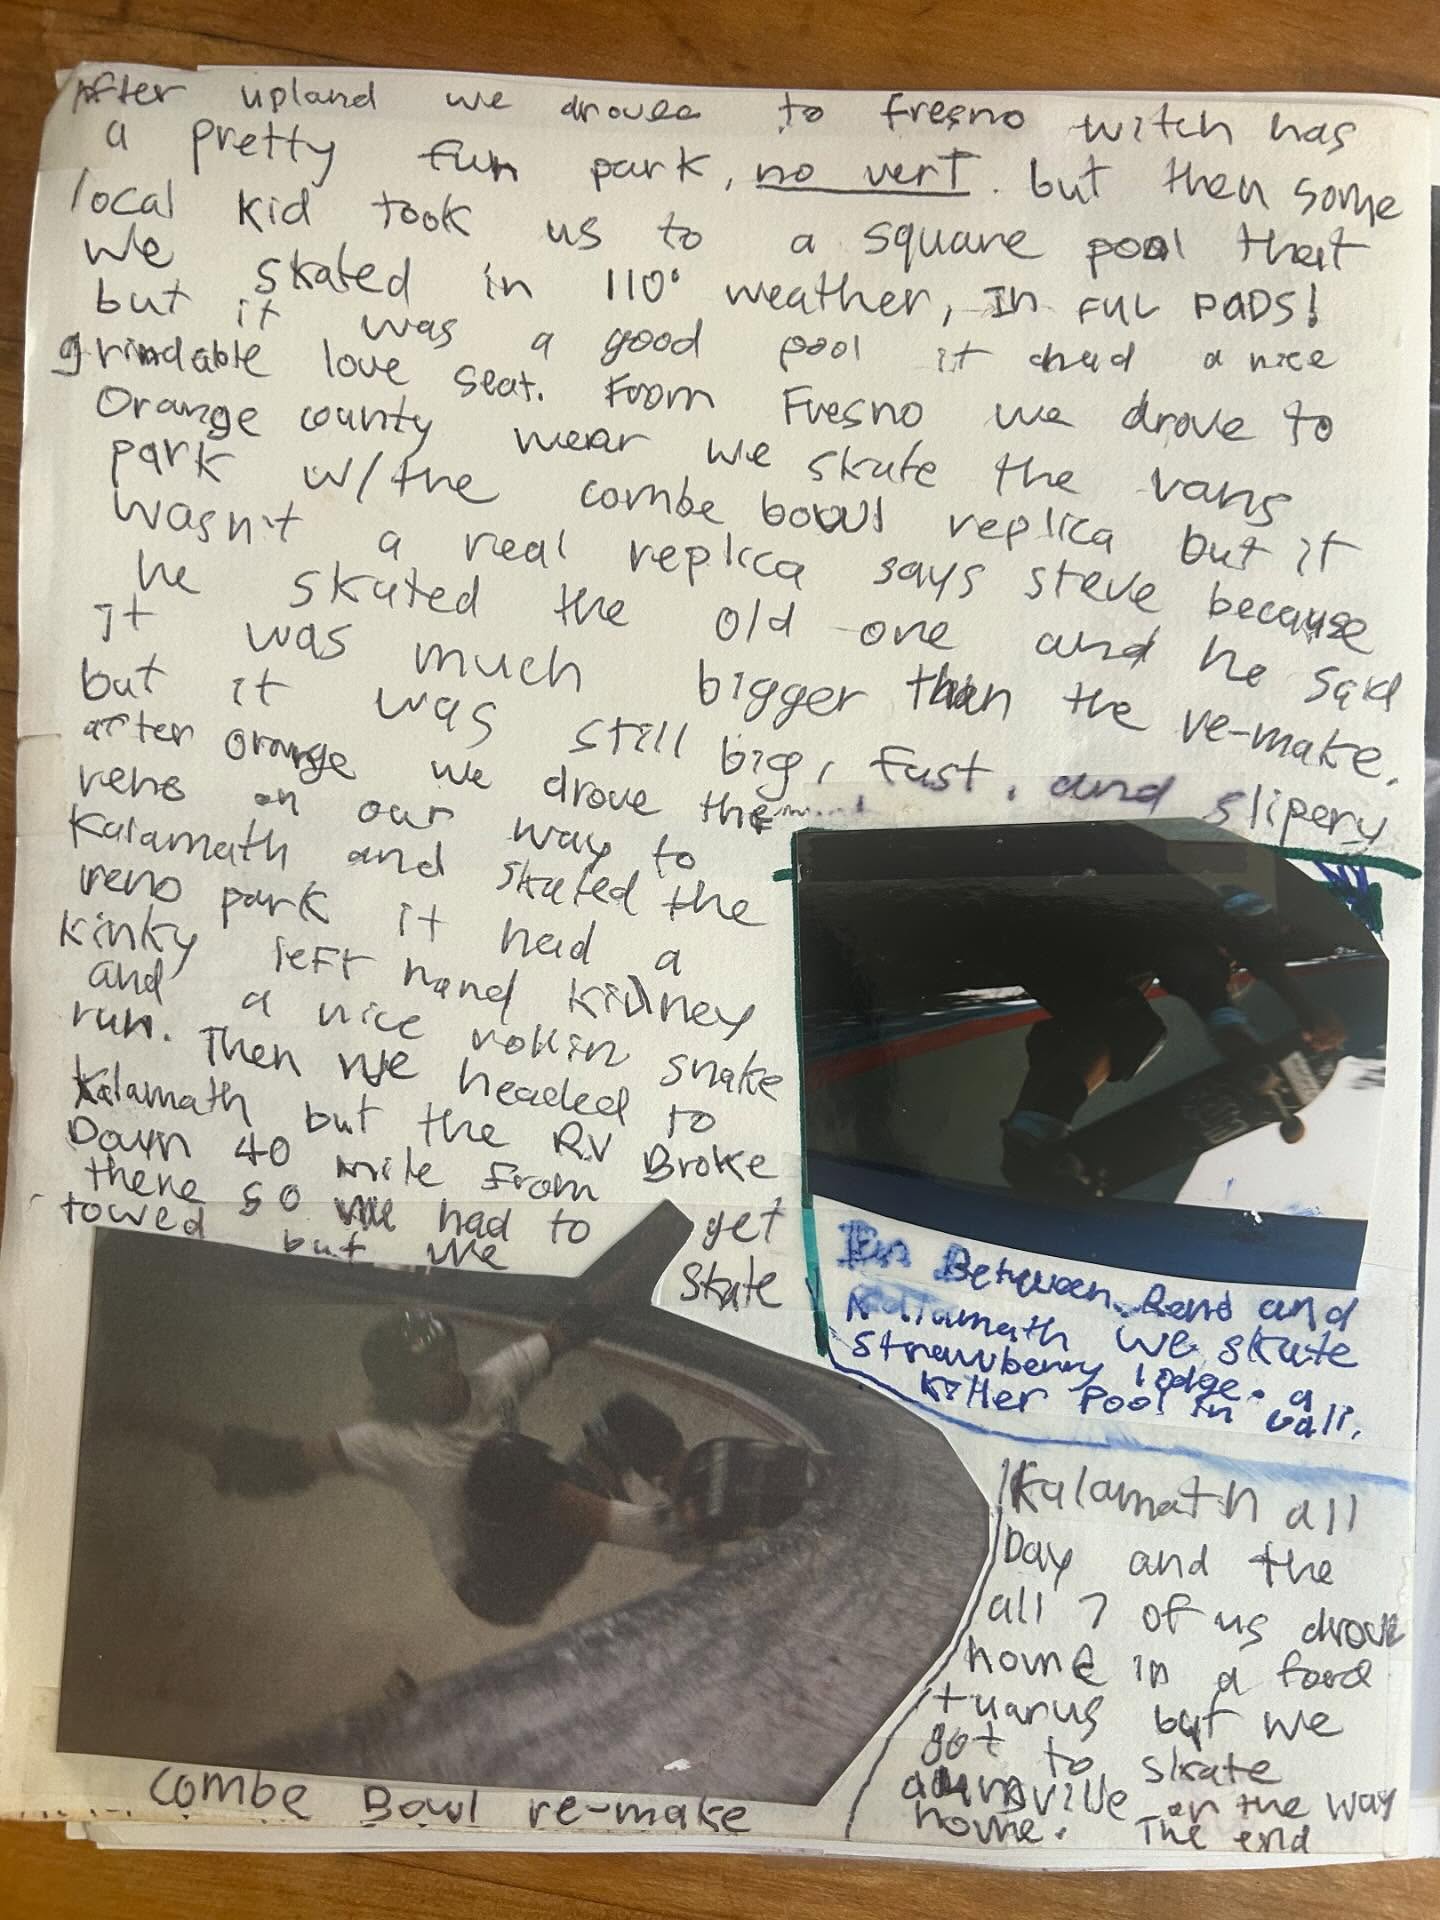 After upland we drovee to fresno witch has
a pretty fun park, no vert. but then some
local kid took us to a square pool that
we skated in 110° weather, In FUL PADS!
but it was a good pool it had a nice
grindable love seat. From Fresno we drove to
Orange county wear we skate the vans
park w/the combe bowl replica but it
wasn't a real replica says steve because
he skated the old one and he said
it was much bigger than the re-make.
but it was still big, fast, and slipery
after orange we drove
reno on our way to
Kalamath and skated the
reno park it had a
kinky left hand kidney
and a nice rollin snake
run. Then we headed to
Kalamath but the RV Broke
Down 40 mile from
there so we had to get
towed but we skate
In Between Reno and
Kalamath we skate
strawberry lodge. a
killer pool in cali.
Kalamath all
Day and the
all 7 of us drove
home in a ford
tuarus but we
got to skate
on the way
home. The end
combe Bowl re-make